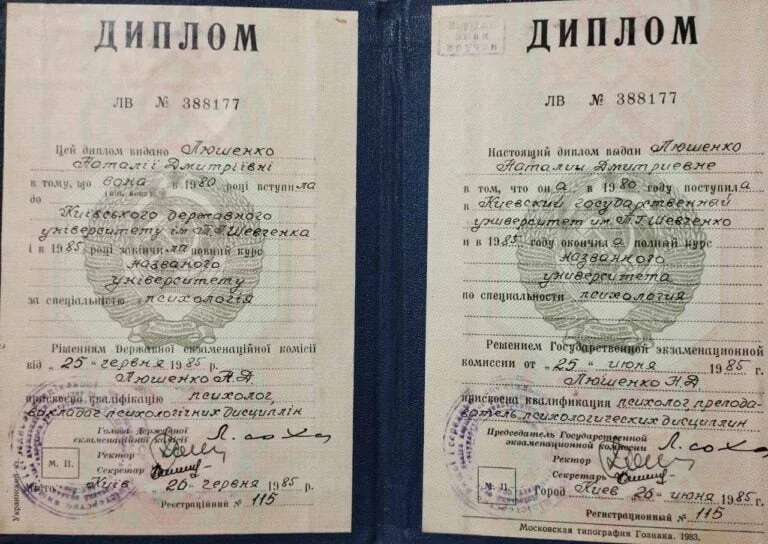 ДИПЛОМ
ЛВ № 388177
Цей диплом видано Люшенко
Наталії Дмитріївні
в тому, що вона в 1980 році вступила
(він, вона)
до
Київського державного
університету ім. Т.Г. Шевченка
і в 1985 році закінчила повний курс
названого
університету
за спеціальністю психологія
Рішенням Державної екзаменаційної комісії
від „25" червня 1985 р.
Люшенко Н.Д.
присвоєно кваліфікацію психолог,
викладач психологічних дисциплін
Голова Державної
екзаменаційної комісії
Ректор
Секретар
М. П.
Місто Київ 26 червня 1985 р.
Реєстраційний № 115
Нагрудн
знак
вручен
ДИПЛОМ
ЛВ № 388177
Настоящий диплом выдан Люшенко
Наталии Дмитриевне
в том, что она в 1980 году поступила
в Киевский государственный
университет им. Т.Г. Шевченко
и в 1985 году окончила полный курс
названного
университета
по специальности психология
Решением Государственной экзаменационной
комиссии от „25" июня 1985 г.
Люшенко Н.Д.
присвоена квалификация психолог, препода-
ватель психологических дисциплин
Председатель Государственной
экзаменационной комиссии
Ректор
Секретарь
М. П.
Город Киев 26 июня 1985 г.
Регистрационный № 115
Московская типография Гознака. 1983.